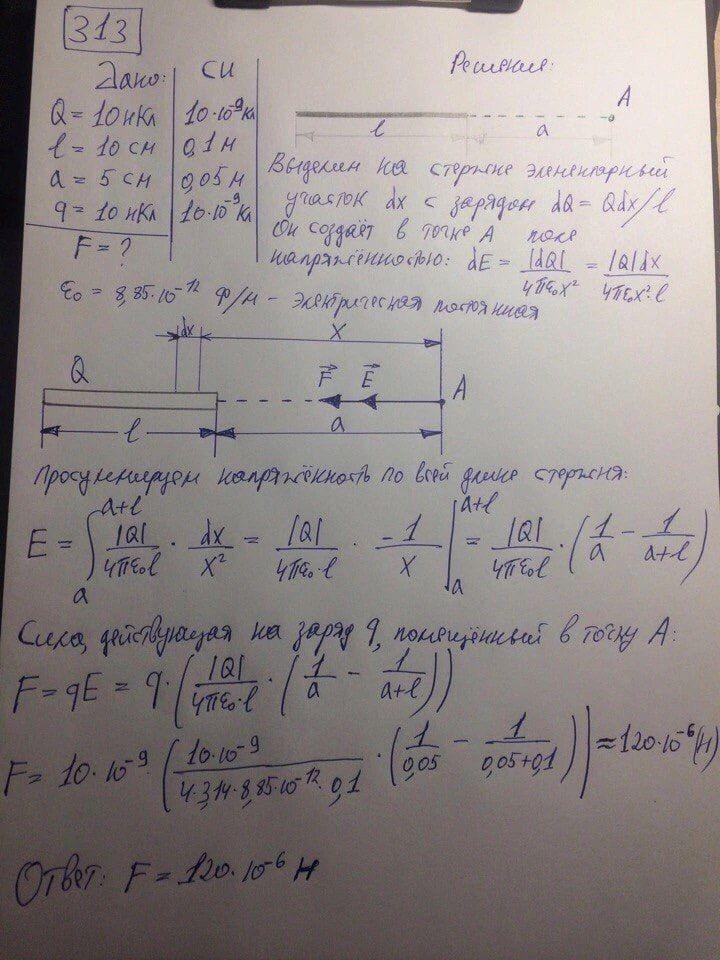 313
Дано: СИ Решение:
Q = 10 нКл 10·10⁻⁹ Кл
l = 10 см 0,1 м
a = 5 см 0,05 м
q = 10 нКл 10·10⁻⁹ Кл
F = ?
l a A
Выделим на стержне элементарный
участок dx с зарядом dQ = Qdx/l
Он создаёт в точке A поле
напряжённостью: dE = |dQ|/4πε₀x² = |Q|dx/4πε₀x²·l
ε₀ = 8,85·10⁻¹² Ф/м – электрическая постоянная
dx x
Q F⃗ E⃗ A
l a
Просуммируем напряжённость по всей длине стержня:
E = ∫ₐᵃ⁺ˡ |Q|/4πε₀l · dx/x² = |Q|/4πε₀l · -1/x |ₐᵃ⁺ˡ = |Q|/4πε₀l · (1/a − 1/a+l)
Сила, действующая на заряд q, помещённый в точку A:
F = qE = q·(|Q|/4πε₀·l · (1/a − 1/a+l))
F = 10·10⁻⁹·(10·10⁻⁹/4·3,14·8,85·10⁻¹²·0,1 · (1/0,05 − 1/0,05+0,1)) ≈ 120·10⁻⁶ (Н)
Ответ: F = 120·10⁻⁶ Н